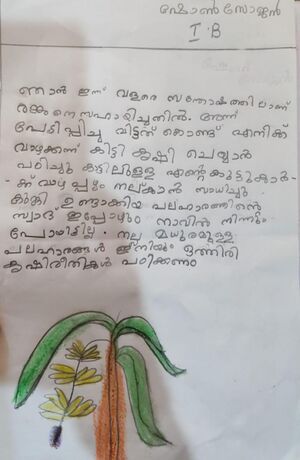 ഷോൺ സോജൻ
I B
ഞാൻ ഇന്ന് വളരെ സന്തോഷത്തിലാണ്
അമ്മനെ സഹായിച്ചതിൽ. അന്ന്
പേടിപ്പിച്ചു വിട്ടത് കൊണ്ട് എനിക്ക്
വാഴക്കന്ന് കിട്ടി കൃഷി ചെയ്യാൻ
പഠിച്ചു കാട്ടിലുള്ള എന്റെ കൂട്ടുകാർ-
-ക്ക് വാഴ പ്പഴം നല്കാൻ സാധിച്ചു.
ഉണ്ടാക്കിയ പലഹാരത്തിന്റെ
സ്വാദ് ഇപ്പോഴും നാവിൽ നിന്നും
പോയിട്ടില്ല. നല്ല മധുരമുള്ള
പലഹാരങ്ങൾ ഇനിയും ഒത്തിരി
കൃഷിരീതികൾ പഠിക്കണം